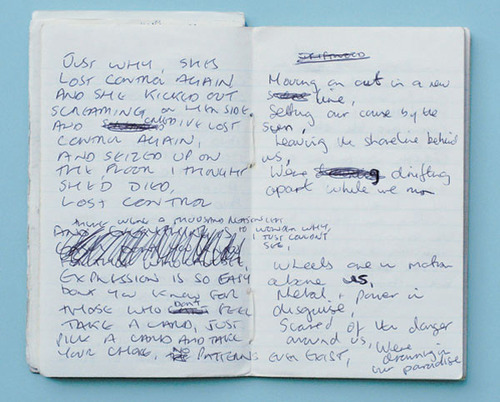 JUST WHY, SHES
LOST CONTROL AGAIN
AND SHE KICKED OUT
SCREAMING ON HER SIDE
AND LOST
CONTROL AGAIN,
AND SEIZED UP ON
THE FLOOR I THOUGHT
SHE'D DIED,
LOST CONTROL
THERE WERE A THOUSAND
TO WONDER WHY,
I JUST COULDN'T
SEE,
EXPRESSION IS SO EASY
DON'T YOU KNOW FOR
THOSE WHO DON'T FEEL
TAKE A CARD, JUST
PICK A CARD AND TAKE
YOUR CHOICE, NO PATTERNS EVER EXIST,
Moving on out in a new
line,
Setting our course by the
sun,
Leaving the shoreline behind
us,
We're drifting
apart while we
Wheels are in motion
above us,
Metal + power in
disguise,
Scared of the danger
around us,
We're
drowning in
our paradise